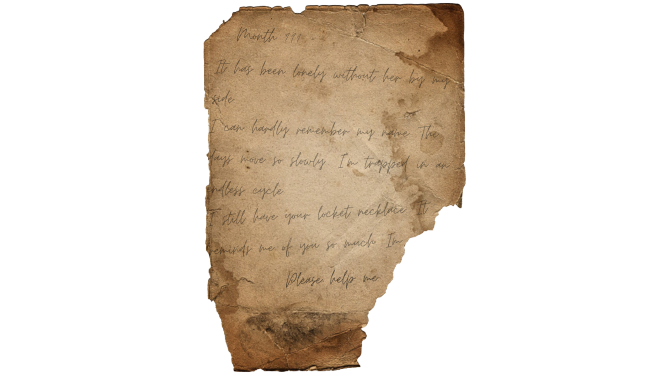 Month
It has been lonely without her by my
side
I can hardly remember my name The
days move so slowly. I'm trapped in an
ndless cycle
I still have your locket necklace It
reminds me of you so much. I'm
Please help me